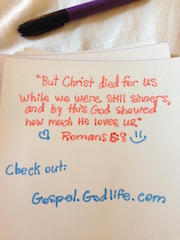 "But Christ died for us
while we were still sinners,
and by this God showed
how much He loves us."
Romans 5:8
Check out:
Gospel.Godlife.com